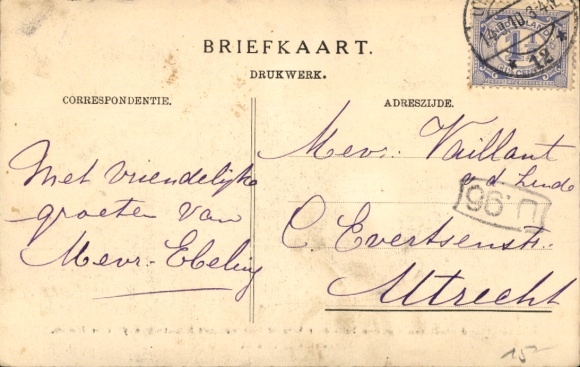 BRIEFKAART.
DRUKWERK.
CORRESPONDENTIE.
Met vriendelijke
groeten van
Mevr. Ebeling
ADRESZIJDE.
Mevr. Vaillant
v d Linde
C. Evertsenstr.
Utrecht
U.96
12